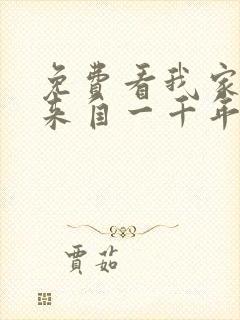 免费看我家
来自一千年
贾茹